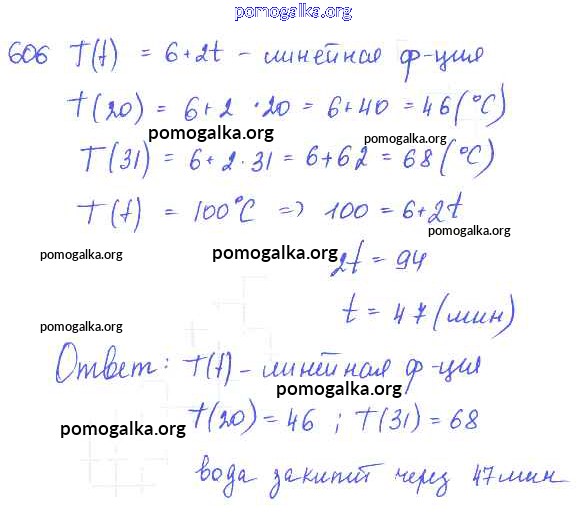 pomogalka.org
606 T(t) = 6+2t - линейная ф-ция
T(20) = 6+2·20 = 6+40 = 46(°C)
pomogalka.org pomogalka.org
T(31) = 6+2·31 = 6+62 = 68(°C)
T(t) = 100°C => 100 = 6+2t
pomogalka.org
pomogalka.org pomogalka.org 2t = 94
t = 47(мин)
pomogalka.org
Ответ: T(t) - линейная ф-ция
pomogalka.org
T(20) = 46 ; T(31) = 68
pomogalka.org
вода закипит через 47 мин